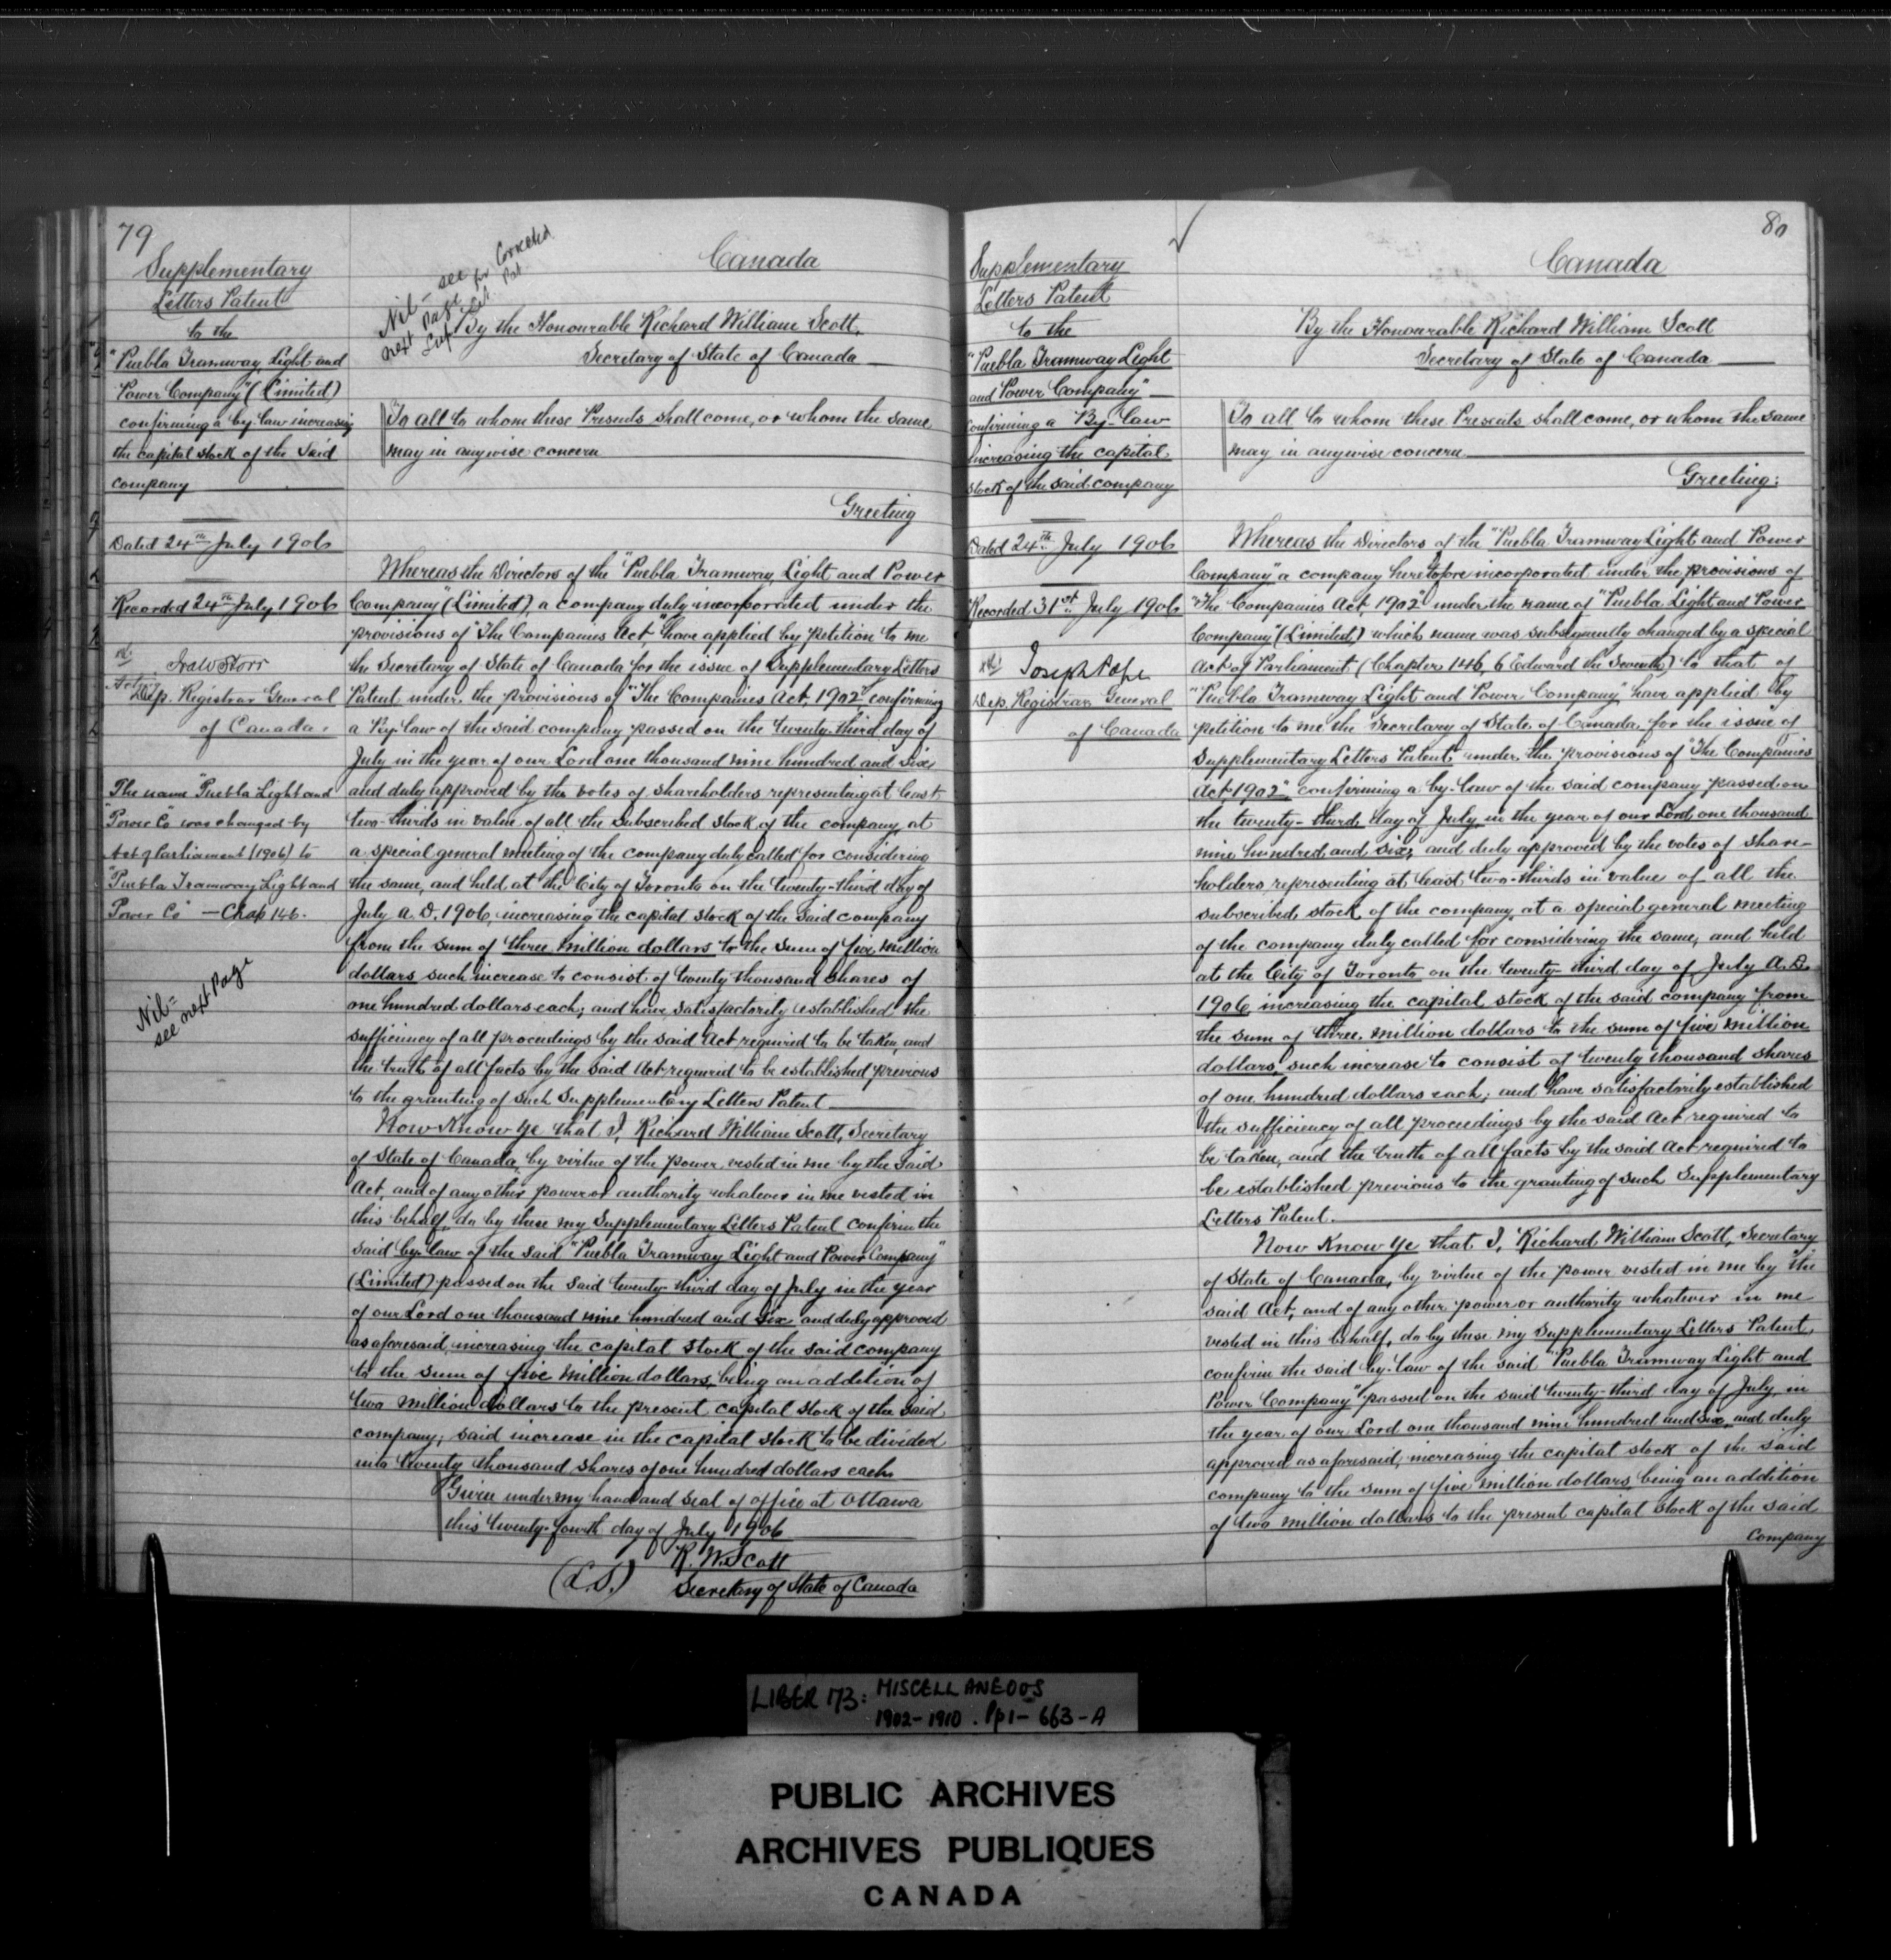 79
Supplementary
Letters Patent
to the
"Puebla Tramway Light and
Power Company" (Limited)
confirming a by-law increasing
the capital stock of the said
company
Dated 24th July 1906
Recorded 24th July 1906
Ira W Storr
Acting
Dep. Registrar General
of Canada.
The name "Puebla Light and
Power Co" was changed by
Act of Parliament (1906) to
"Puebla Tramway Light and
Power Co" - Chap 146.
Nil =
see next Page
Nil - see
next Page for Corrected
Sup. Let. Pat
Canada
By the Honourable Richard William Scott,
Secretary of State of Canada
To all to whom these Presents shall come, or whom the same
may in anywise concern
Greeting
Whereas the Directors of the "Puebla Tramway, Light and Power
Company" (Limited), a company duly incorporated under the
provisions of "The Companies Act," have applied by petition to me
the Secretary of State of Canada for the issue of Supplementary Letters
Patent under the provisions of "The Companies Act, 1902" confirming
a by-law of the said company passed on the twenty-third day of
July in the year of our Lord one thousand nine hundred and six,
and duly approved by the votes of shareholders representing at least
two-thirds in value of all the subscribed stock of the company, at
a special general meeting of the company duly called for considering
the same, and held at the City of Toronto on the twenty-third day of
July A.D. 1906, increasing the capital stock of the said company
from the sum of three million dollars to the sum of five million
dollars such increase to consist of twenty thousand shares of
one hundred dollars each; and have satisfactorily established the
sufficiency of all proceedings by the said Act required to be taken, and
the truth of all facts by the said Act required to be established previous
to the granting of such Supplementary Letters Patent
Now Know Ye that I, Richard William Scott, Secretary
of State of Canada, by virtue of the power vested in me by the said
Act, and of any other power or authority whatever in me vested in
this behalf, do by these my Supplementary Letters Patent confirm the
said by-law of the said "Puebla Tramway Light and Power Company"
(Limited) passed on the said twenty-third day of July in the year
of our Lord one thousand nine hundred and six and duly approved
as aforesaid, increasing the capital stock of the said company
to the sum of five million dollars, being an addition of
two million dollars to the present capital stock of the said
company; said increase in the capital stock to be divided
into twenty thousand shares of one hundred dollars each
Given under my hand and seal of office at Ottawa
this twenty-fourth day of July 1906
R. W. Scott
(L.S.) Secretary of State of Canada
80
Supplementary
Letters Patent
to the
"Puebla Tramway Light
and Power Company"
confirming a By-law
increasing the capital
stock of the said company
Dated 24th July 1906
Recorded 31st July 1906
Joseph Pope
Dep. Registrar General
of Canada
Canada
By the Honourable Richard William Scott
Secretary of State of Canada
To all to whom these Presents shall come, or whom the same
may in anywise concern
Greeting:
Whereas the Directors of the "Puebla Tramway Light and Power
Company" a company heretofore incorporated under the provisions of
"The Companies Act, 1902" under the name of "Puebla Light and Power
Company" (Limited,) which name was subsequently changed by a special
Act of Parliament (Chapter 146, 6 Edward the Seventh,) to that of
"Puebla Tramway Light and Power Company" have applied by
petition to me the Secretary of State of Canada, for the issue of
Supplementary Letters Patent under the provisions of "The Companies
Act, 1902" confirming a by-law of the said company passed on
the twenty-third day of July in the year of our Lord one thousand
nine hundred and six, and duly approved by the votes of share-
holders representing at least two-thirds in value of all the
subscribed stock of the company, at a special general meeting
of the company duly called for considering the same, and held
at the City of Toronto on the twenty-third day of July A.D.
1906, increasing the capital stock of the said company from
the sum of three million dollars to the sum of five million
dollars, such increase to consist of twenty thousand shares
of one hundred dollars each; and have satisfactorily established
the sufficiency of all proceedings by the said Act required to
be taken, and the truth of all facts by the said Act required to
be established previous to the granting of such Supplementary
Letters Patent.
Now Know Ye that I, Richard William Scott, Secretary
of State of Canada, by virtue of the power vested in me by the
said Act, and of any other power or authority whatever in me
vested in this behalf, do by these my Supplementary Letters Patent,
confirm the said by-law of the said "Puebla Tramway Light and
Power Company" passed on the said twenty-third day of July in
the year of our Lord one thousand nine hundred and six, and duly
approved as aforesaid, increasing the capital stock of the said
company to the sum of five million dollars, being an addition
of two million dollars to the present capital stock of the said
Company
LIBER 173: MISCELLANEOUS
1902-1910. Pp 1-663-A
PUBLIC ARCHIVES
ARCHIVES PUBLIQUES
CANADA